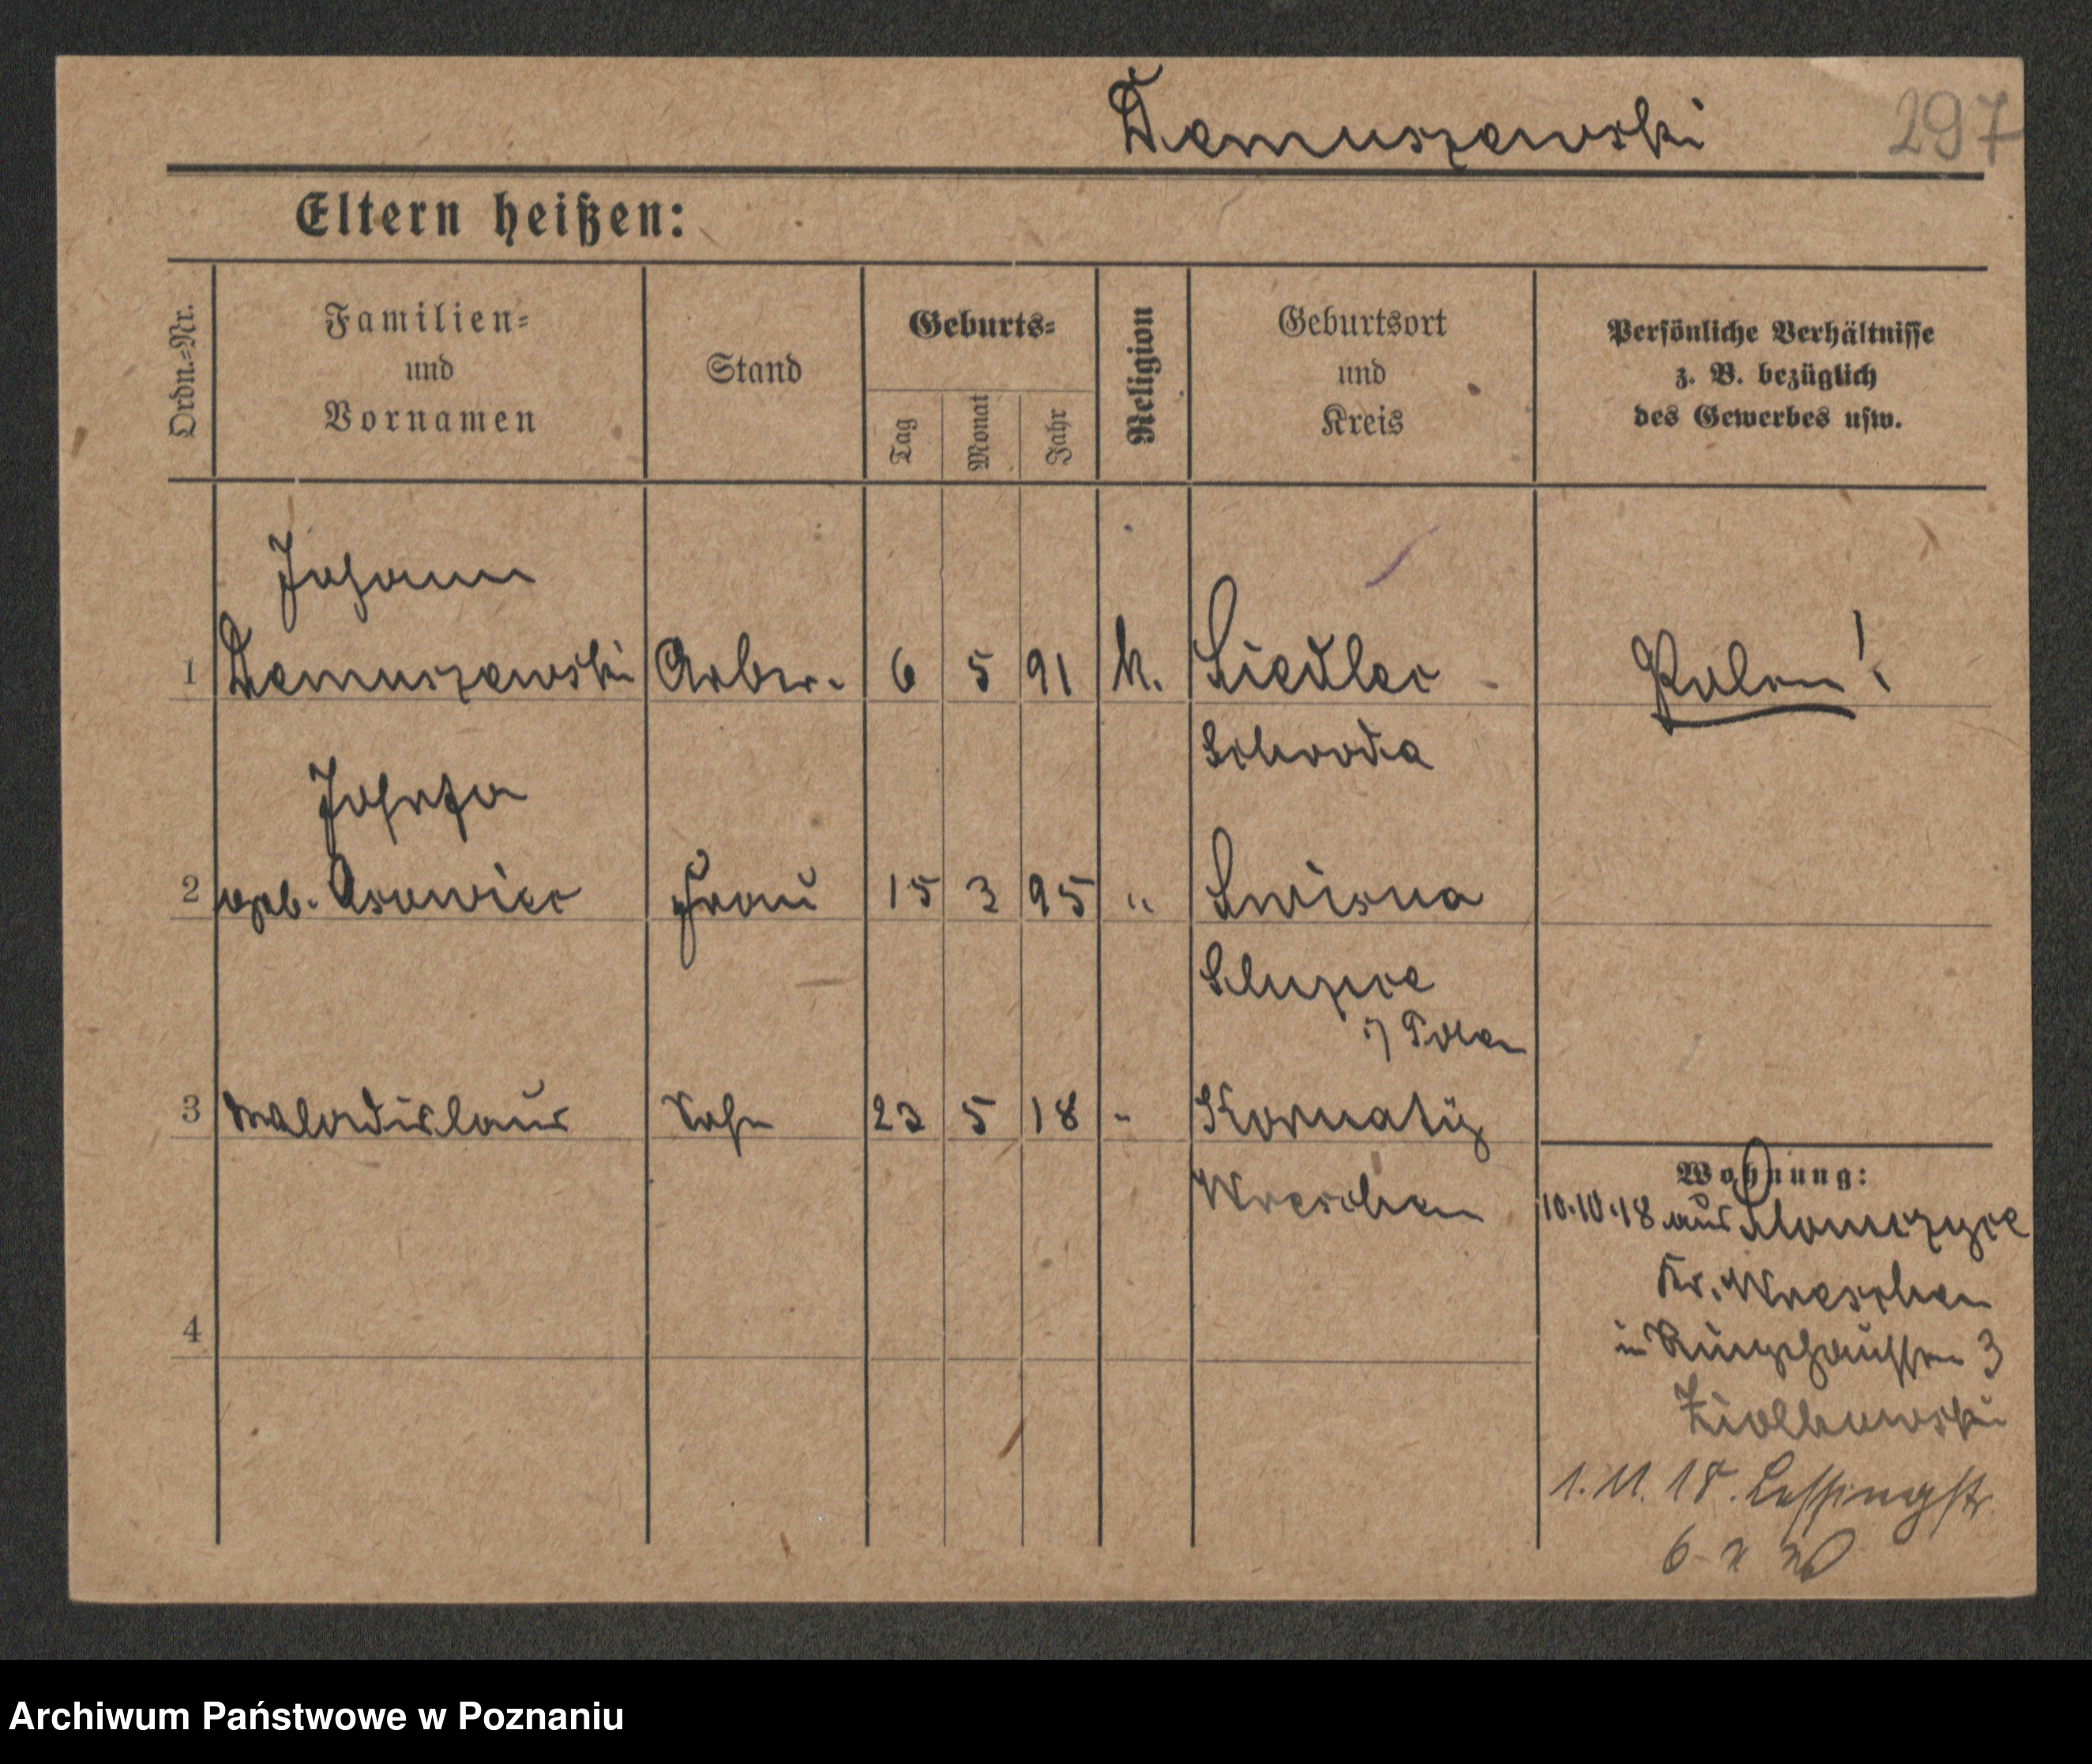 Demuszewski 297
Eltern heißen:
Ordn.-Nr.
Familien-
und
Vornamen
Stand
Geburts-
Tag
Monat
Jahr
Religion
Geburtsort
und
Kreis
Persönliche Verhältnisse
z. B. bezüglich
des Gewerbes usw.
Johann
1 Demuszewski Arbtr. 6 5 91 k. Siedlec Polen!
Schroda
Josefa
2 geb. Frau 15 3 95 "
Slupce
Polen
3 Wladislaus Sohn 23 5 18 " Kornaty
Wreschen
Wohnung:
10.10.18 aus
Kr. Wreschen
in 3
Ziolkowski
4
1.11.18. Lessingstr.
6
Archiwum Państwowe w Poznaniu